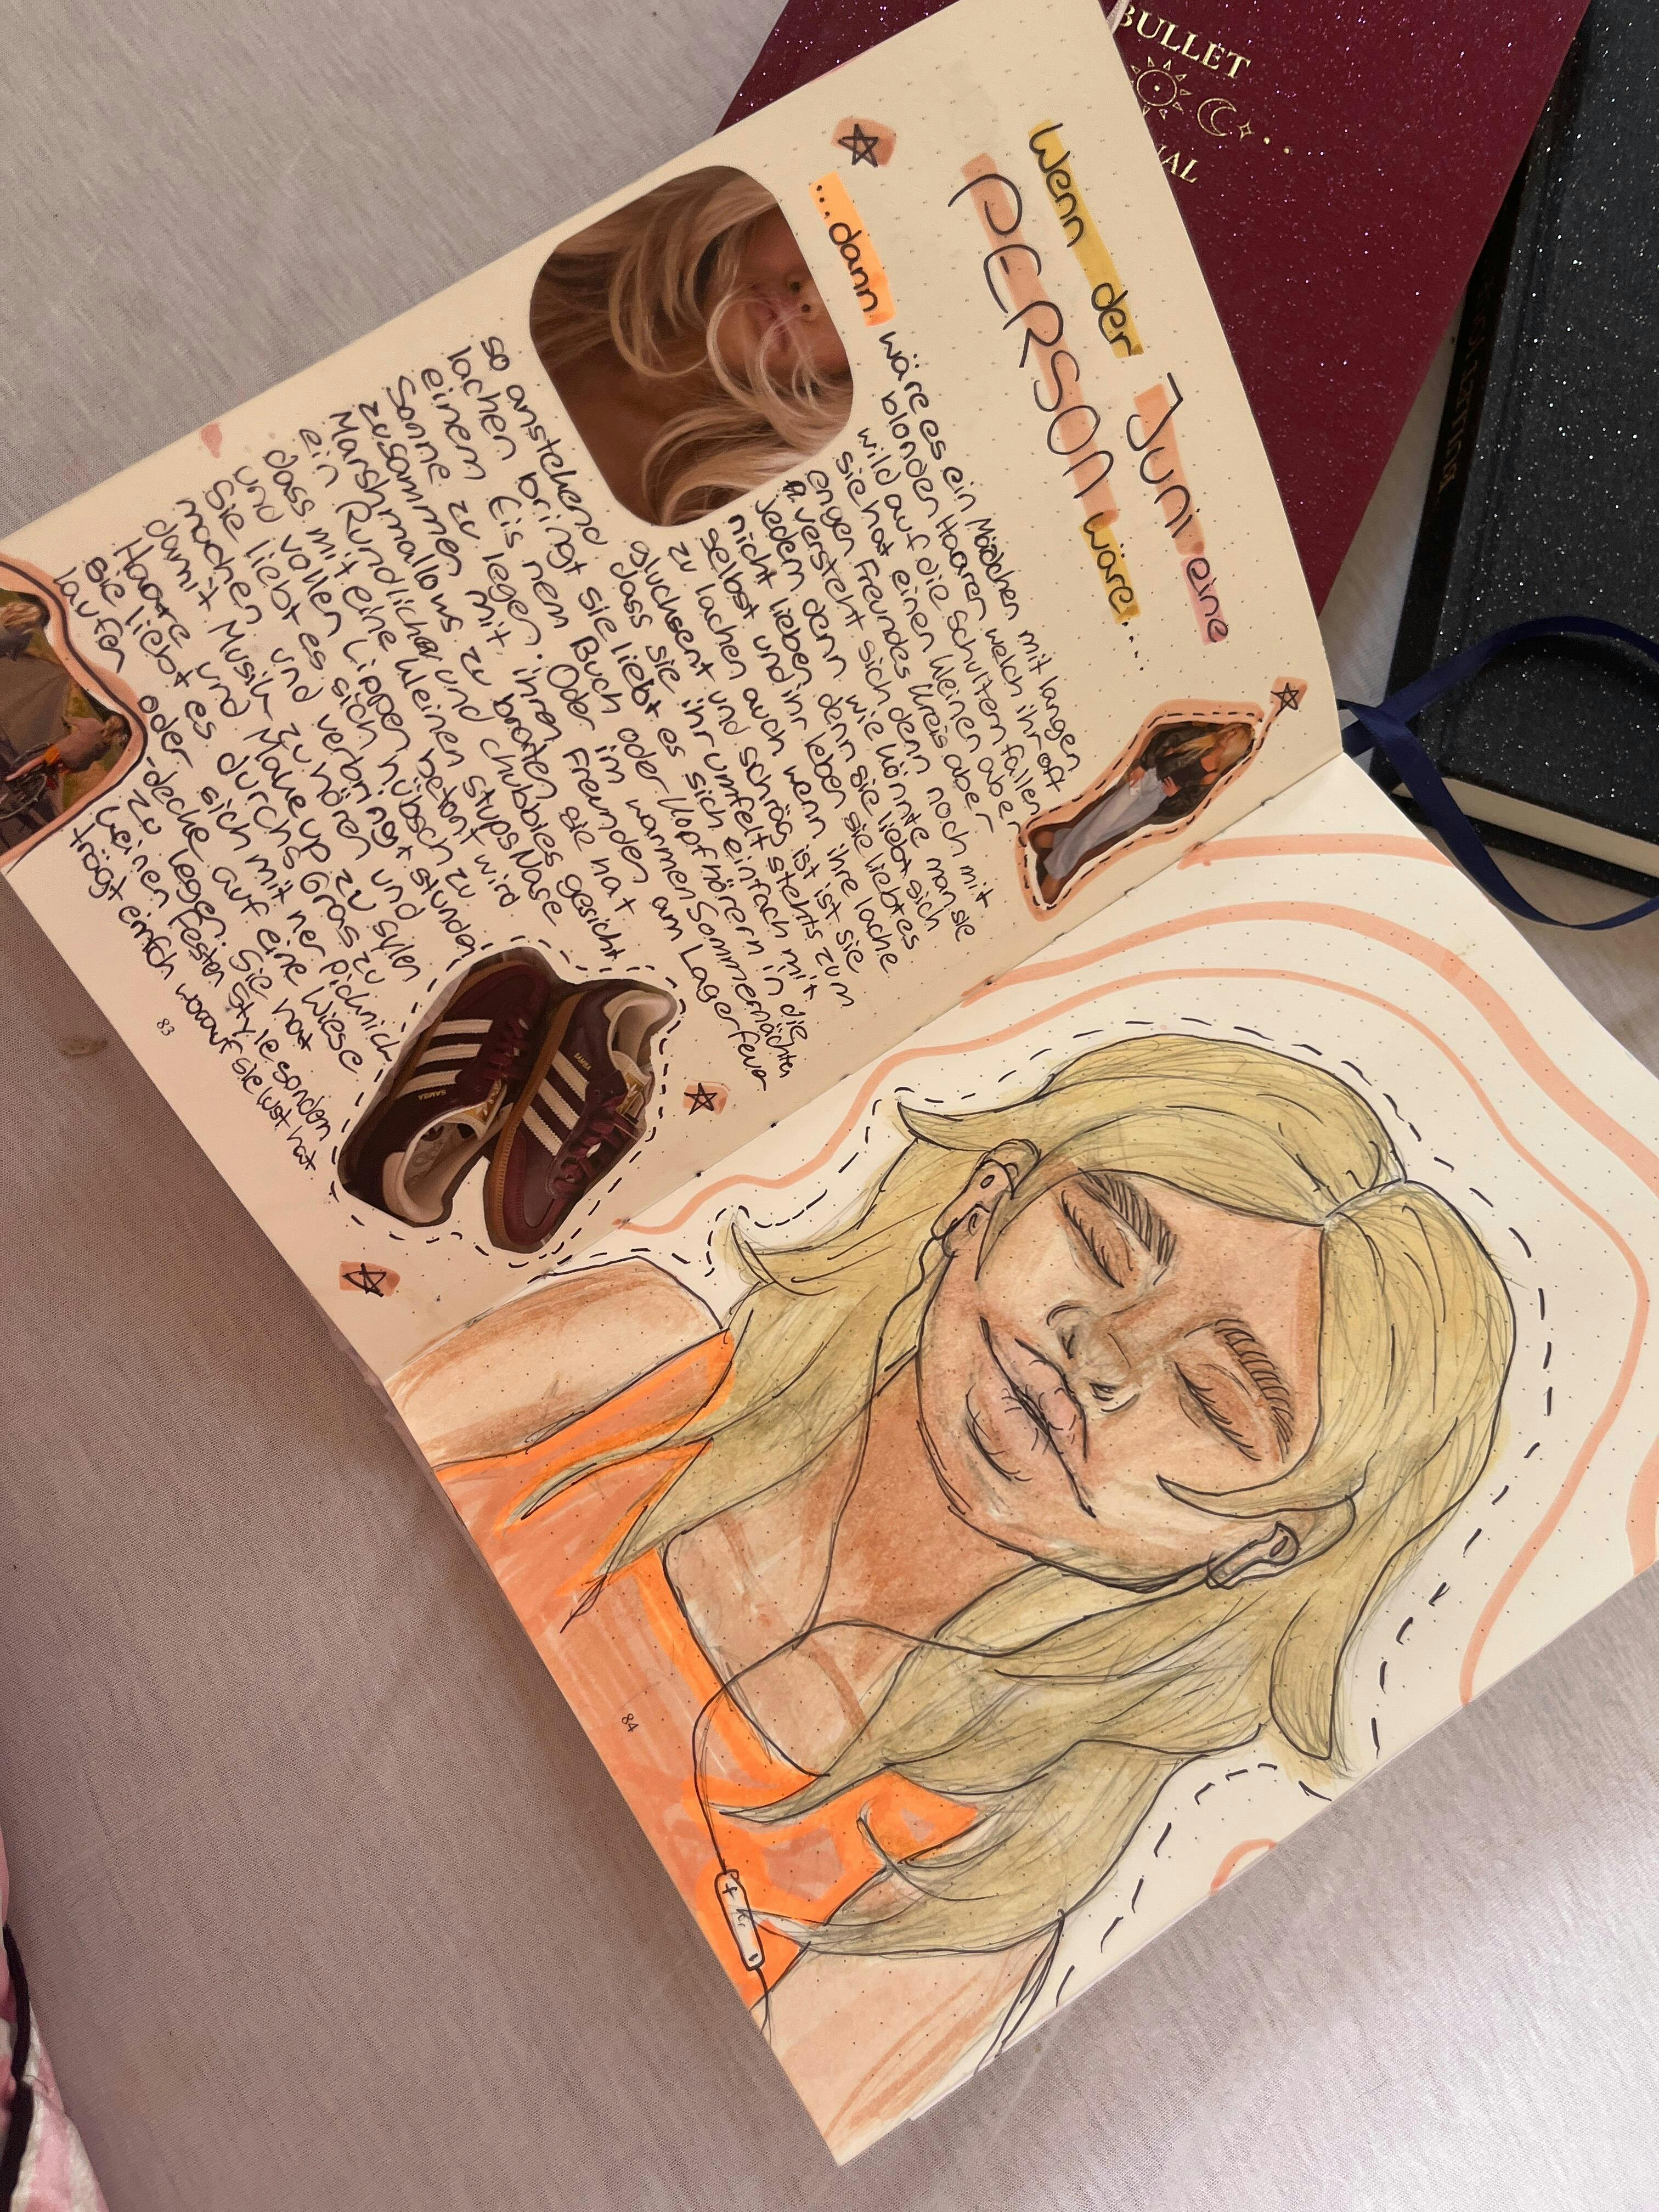 BULLET
NAL
Wenn der Juni eine
PERSON wäre....
...dann wäre es ein Mädchen mit langen
blonden Haaren welch ihr oft
wild auf die Schultern fallen
sie hat einen kleinen aber
engen Freundes kreis aber
versteht sich denn noch mit
jedem denn wie könnte man sie
nicht lieben denn sie liebt sich
selbst und ihr leben sie liebt es
zu lachen auch wenn ihre lache
glucksent und schräg ist ist sie
so anstechend dass sie ihr umfelt stehts zum
lachen bringt sie liebt es sich einfach mit
einem Eis nem Buch oder Kopfhörern in die
Sonne zu legen. Oder im warmen Sommernächten
zusammen mit ihren Freunden am Lagerfeuer
Marshmallows zu braten sie hat
ein Rundliches und chubbies gesicht
mit eine kleinen stups Nase
und vollen Lippen betont wird.
Sie liebt es sich hübsch zu
machen und verbringt stunden
damit Musik zu hören und
Haare und Make up zu stylen
sie liebt es durchs Gras zu
laufen oder sich mit ner picknick
-decke auf eine Wiese
zu legen. Sie hat
keinen festen Style sonden
trägt einfach worauf sie lust hat
SAMBA
SAMBA
83
84